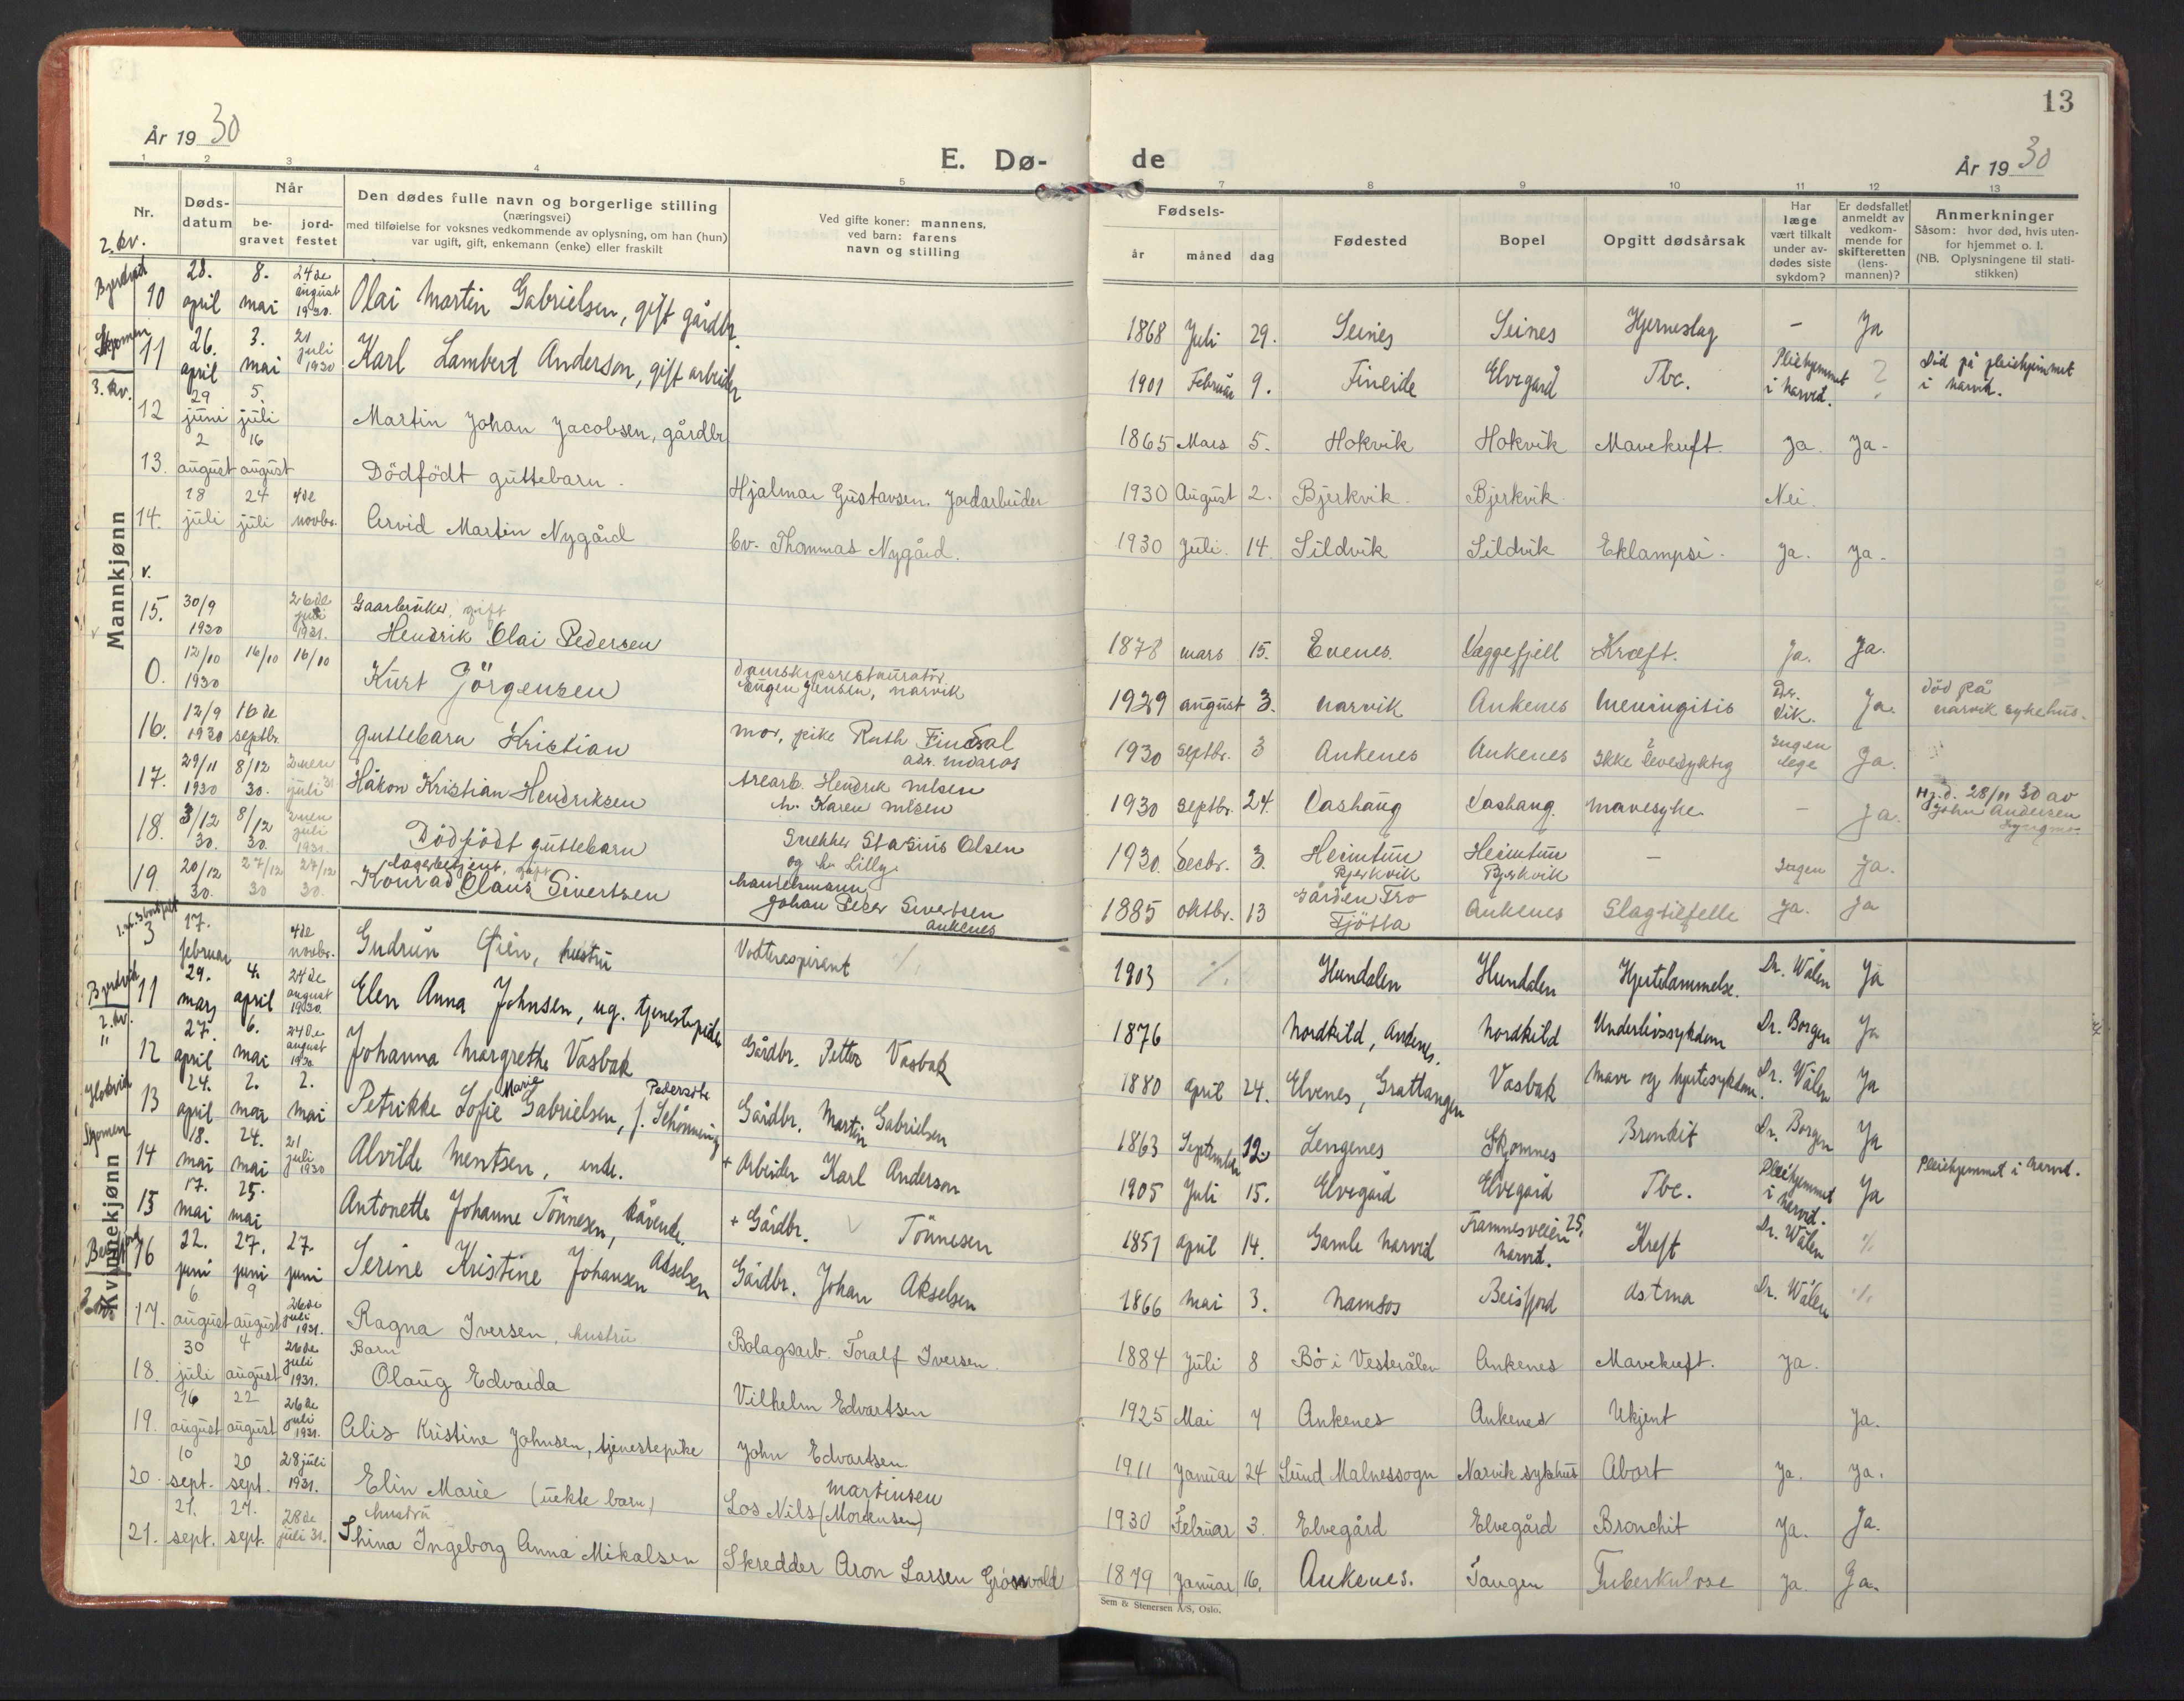 13
År 19 30
E. Dø-
de
År 19 30
1 2 3 4 5 6 7 8 9 10 11 12 13
Nr.
Døds-
datum
Når
be-
gravet
jord-
festet
Den dødes fulle navn og borgerlige stilling
(næringsvei)
med tilføielse for voksnes vedkommende av oplysning, om han (hun)
var ugift, gift, enkemann (enke) eller fraskilt
Ved gifte koner: mannens,
ved barn: farens
navn og stilling
Fødsels-
år måned dag
Fødested
Bopel
Opgitt dødsårsak
Har
læge
vært tilkalt
under av-
dødes siste
sykdom?
Er dødsfallet
anmeldt av
vedkom-
mende for
skifteretten
(lens-
mannen)?
Anmerkninger
Såsom: hvor død, hvis uten-
for hjemmet o. l.
(NB. Oplysningene til stati-
stikken)
Mannkjønn
2. kv.
10 28. april 8. mai 24de august 1930. Olai Martin Gabrielsen, gift gårdbr. 1868 Juli 29. Seines Seines Hjerneslag - Ja
Skjomen 11 26. april 3. mai 21 juli 1930 Karl Lambert Anderson, gift arbeider 1901 Februar 9. Fineide Elvegård Tbc. Pleiehjemmet i Narvik. ? Död på pleiehjemmet i Narvik.
3. kv.
12 29 juni 5. juli Martin Johan Jacobsen, gårdbr. 1865 Mars 5. Hokvik Hokvik Mavekreft. Ja. Ja-
13. 2 august 16 august Dödfödt guttebarn. Hjalmar Gustavsen. Jordarbeider 1930 August 2. Bjerkvik. Bjerkvik Nei.
14. 18 juli 24 juli 4de novbr. Arvid Martin Nygård Thommas Nygård. 1930 Juli. 14. Sildvik Sildvik Eklampsi. Ja. Ja-
15. 30/9 1930 26de juli 1931. Gaarbruker, gift Hendrik Olai Pedersen 1878 mars 15. Evenes. Vaggefjell Kræft. Ja. Ja.
0. 12/10 1930 16/10 16/10 Kurt Jörgensen Damskipsrestauratör Eugen Jensen, Narvik 1929 august 3. Narvik Ankenes Meningitis Dr. Vik. Ja. Död på Narvik sykehus.
16. 12/9 1930 16de septbr. Guttebarn Kristian mor, pike Ruth Findsal adr. Nidaros 1930 septbr. 3 Ankenes Ankenes Ikke levedyktig Ingen læge Ja.
17. 29/11 1930 8/12 30. 2nen juli 31 Håkon Kristian Hendriksen Hendrik Nilsen h. Karen Nilsen 1930 septbr. 24. Vashaug Vashaug. mavesyke - Ja. Hj.d. 28/11 30 av John Andersen
18. 3/12 30. 8/12 30. 2nen juli 1931. Dödfödt guttebarn Snekker Stasius Olsen og h. Lilly. 1930. Decbr. 3. Heimtun Bjerkvik Heimtun Bjerkvik - Ingen Ja.
19 20/12 30. 27/12 30 27/12 30. Lagerbetjent, gift Konrad Claus Sivertsen Handelsmann Johan Peter Sivertsen Ankenes 1885 oktbr. 13 Gården Tro Tjötta Ankenes Slagtilfelle Ja. Ja
Kvinnekjønn
3 17. februar 4de novbr. Gudrun Øien, hustru Vokteraspirant 1903 % Hundalen Hundalen Hjertelammelse. Dr. Wålen Ja
11 29. mars 4. april 24de august 1930. Elen Anna Johnsen, ug. tjenestepike 1876 Nordkild, Andenes. Nordkild Underlivssykdom Dr. Borgen Ja
2. kv.
" 12 27. april 6. mai 24de august 1930. Johanna Margrethe Vasbak Gårdbr. Petter Vasbak 1880 april 24. Elvenes, Grattangen Vasbak Mave og hjertesykdom. Dr. Wålen Ja
13 24. april 2. mai 2. mai Petrikke Sofie Marie Gabrielsen, f. Schönning Gårdbr. Martin Gabrielsen 1863 September 12. Lengenes Skjomnes Bronkit Dr. Borgen Ja
Skjomen 14 18. mai 24. mai 21 juli 1930 Alvilde Mentsen, enke. + Arbeider Karl Anderson 1905 Juli 15. Elvegård Elvegård Tbc. Pleiehjemmet i Narvik. Ja Pleiehjemmet i Narvik.
15 17. mai 25. mai Antonette Johanne Tönnesen, kårenke. + Gårdbr. Tönnesen 1851 april 14. Gamle Narvik Framnesveien 25, Narvik. Kreft Dr. Wålen %
16 22. juni 27. juni 27. juni Serine Kristine Johansen Akselsen Gårdbr. Johan Akselsen 1866 mai 3. Namsos Beisfjord Astma Dr. Wålen %
17. 6 august 9 august 26de juli 1931. Ragna Iversen, hustru Bolagsarb. Toralf Iversen. 1884 Juli 8 Bö i Vesterålen Ankenes Mavekreft. Ja.
18. 30 juli 4 august 26de juli 1931. Barn Olaug Edvarda Vilhelm Edvartsen 1925 Mai 7 Ankenes Ankenes Ukjent Ja.
19. 16 august 22 august 26de juli 1931. Alis Kristine Johnsen, tjenestepike John Edvartsen 1911 Januar 24 Sund Malnessogn Narvik sykehus Abort Ja. Ja.
20. 10 sept. 20 sept. 28 juli 1931. Elin Marie (uekte barn) Los Nils (Mortensen) Martinsen 1930 Februar 3. Elvegård Elvegård Bronchit Ja. Ja.
21. 21. sept. 27. sept. 28de juli 31. hustru Thina Ingeborg Anna Mikalsen Skredder Aron Larsen Grönvold 1879 Januar 16. Ankenes. Tangen Tuberkulose Ja. Ja.
Sem & Stenersen A/S, Oslo.